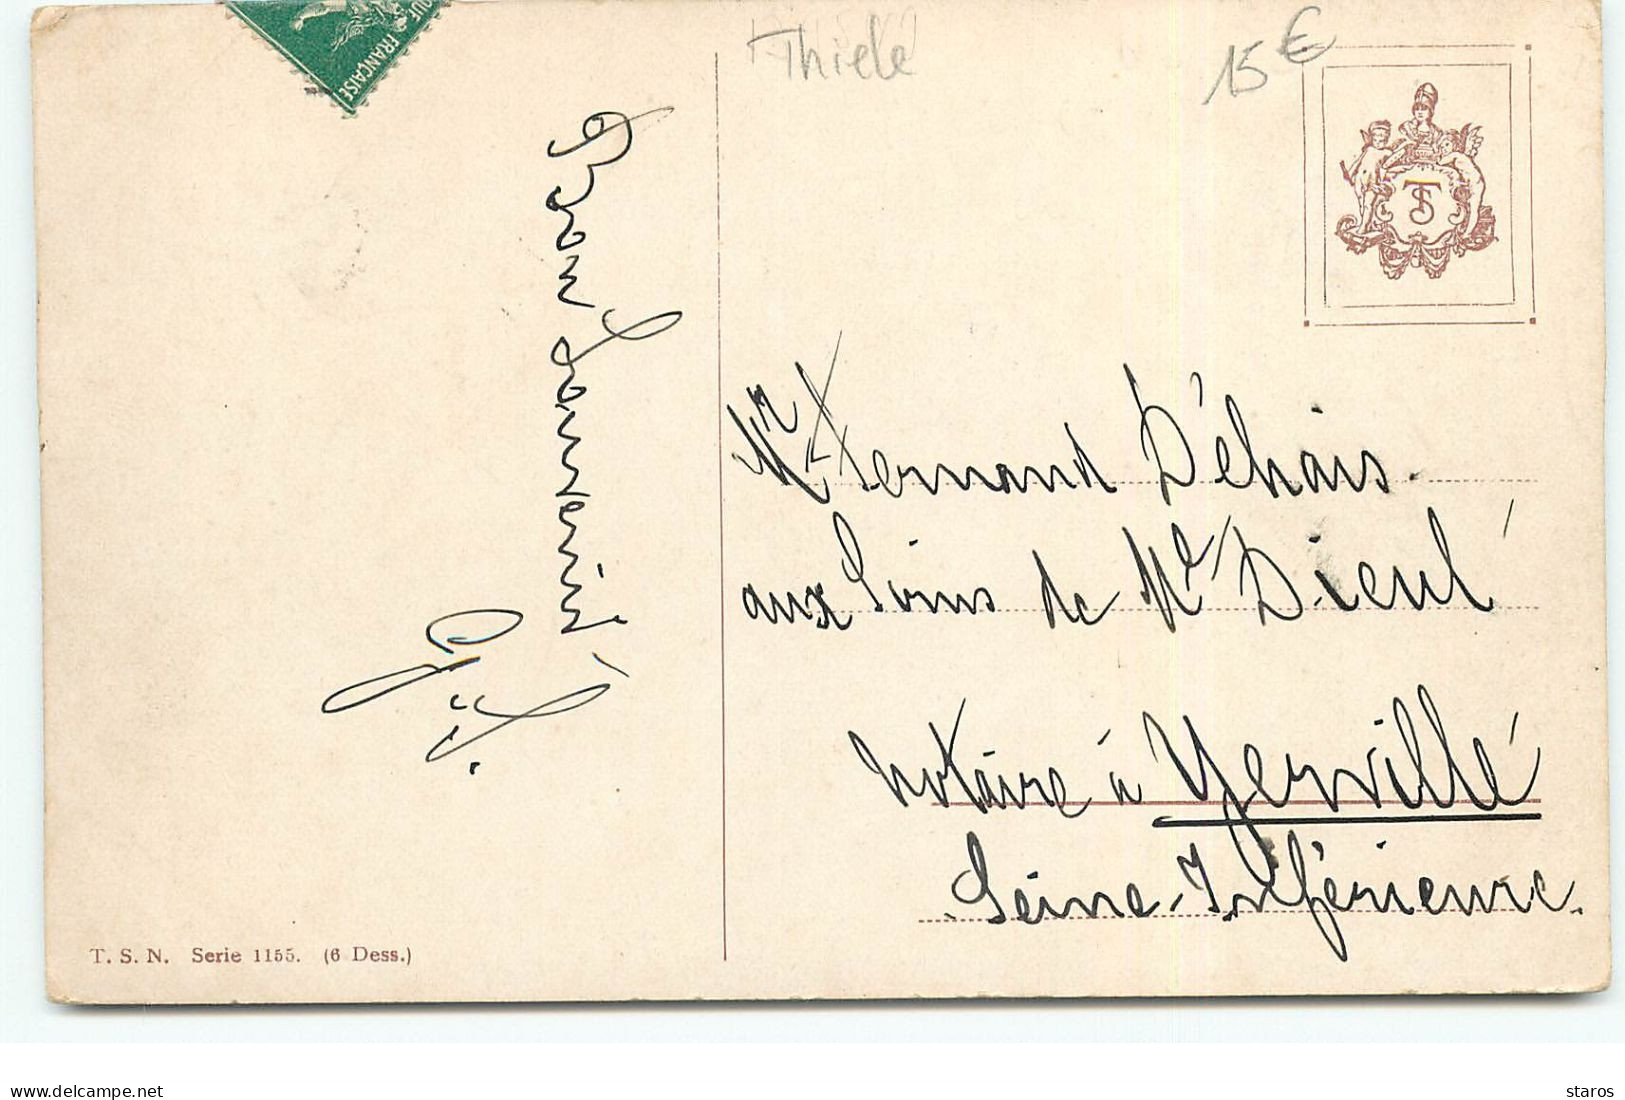 QUE FRANÇAISE
Thiele
15 €
TS
Bon Souvenir
Mr Fernand Déhais.
aux Soins de Me Dieul
Notaire à Yerville
Seine-Inférieure.
T. S. N. Serie 1155. (6 Dess.)
www.delcampe.net
staros